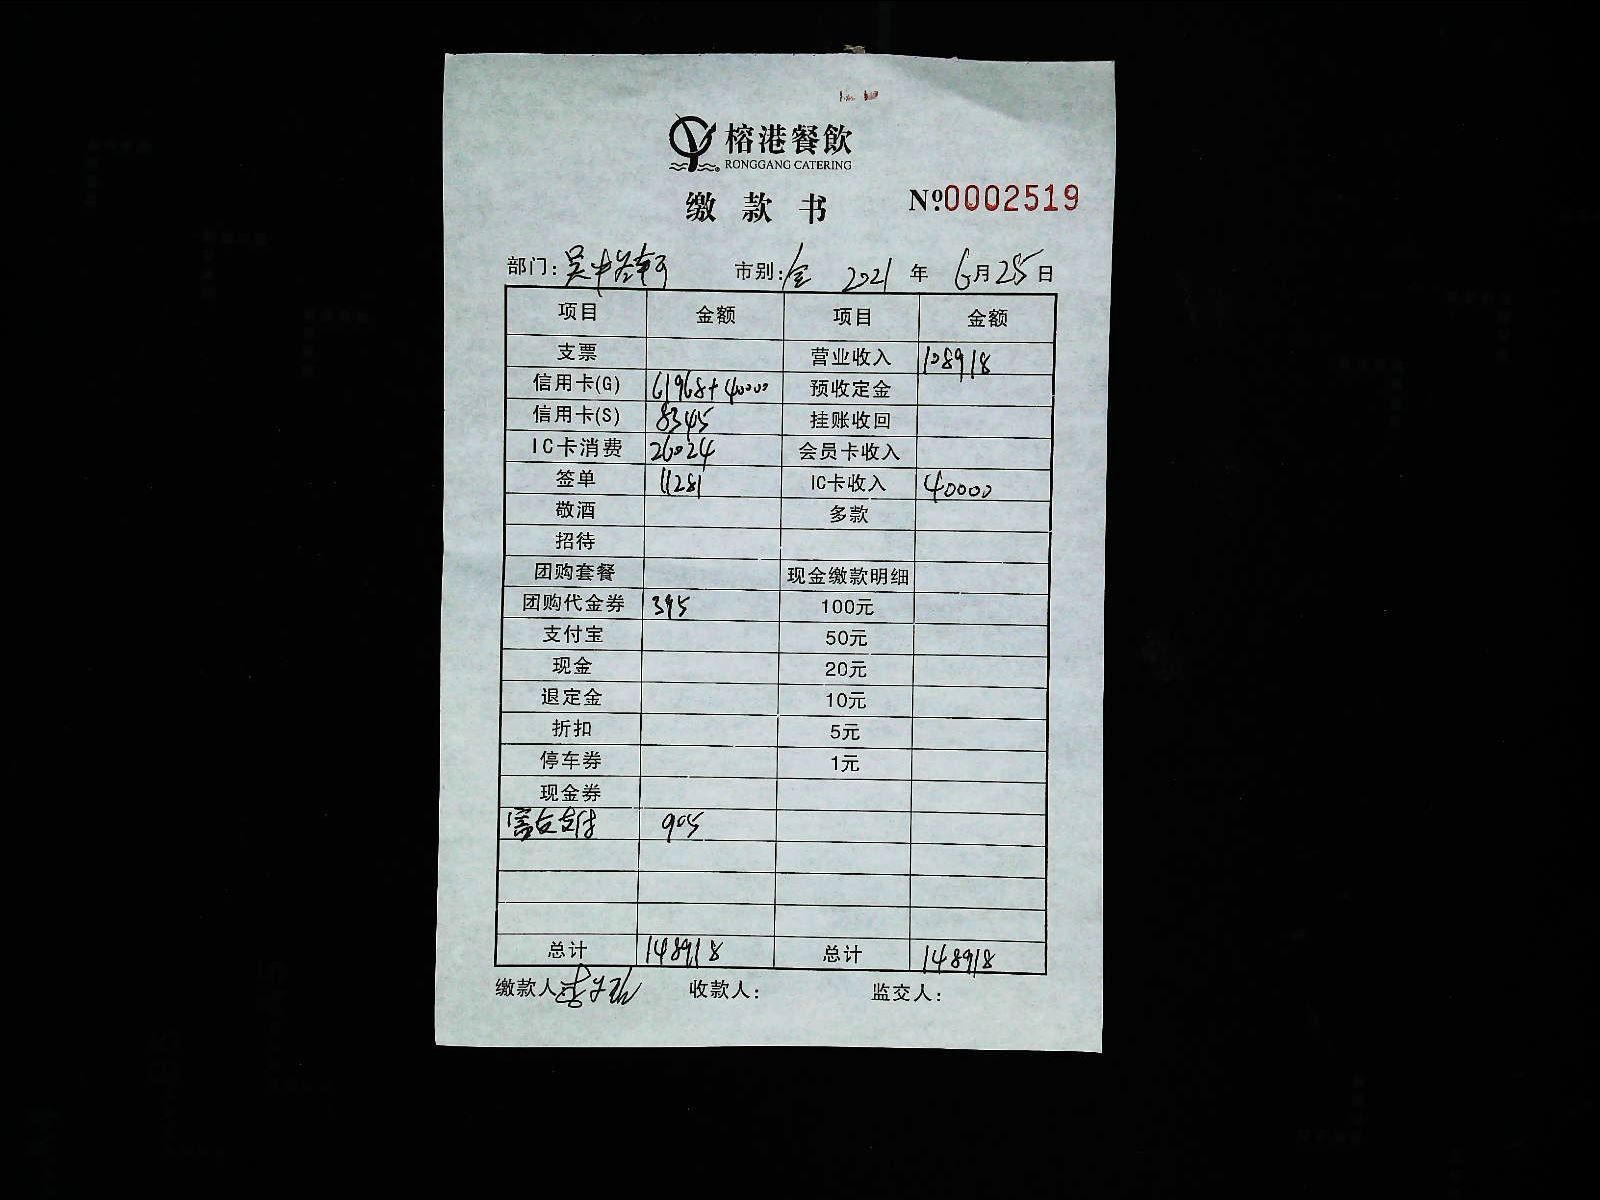 榕港餐飲
RONGGANG CATERING
缴款书 №0002519
部门: 吴中 市别: 全 2021 年 6月25日
项目 金额 项目 金额
支票 营业收入 108918
信用卡(G) 61968+40000 预收定金
信用卡(S) 8345 挂账收回
IC卡消费 26024 会员卡收入
签单 11281 IC卡收入 40000
敬酒 多款
招待
团购套餐 现金缴款明细
团购代金券 395 100元
支付宝 50元
现金 20元
退定金 10元
折扣 5元
停车券 1元
现金券
支付 905
总计 148918 总计 148918
缴款人 收款人: 监交人: